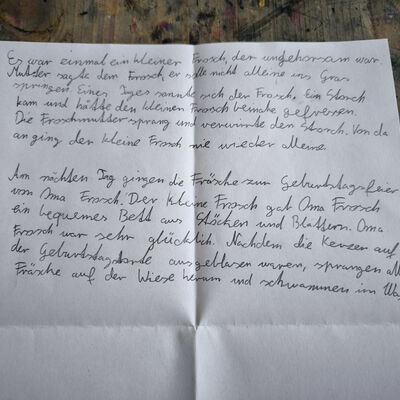 Es war einmal ein kleiner Frosch, der ungehorsam war.
Mutter sagte dem Frosch, er solle nicht alleine ins Gras
springen. Eines Tages sonnte sich der Frosch. Ein Storch
kam und hätte den kleinen Frosch beinahe gefressen.
Die Froschmutter sprang und verwirrte den Storch. Von da
an ging der kleine Frosch nie wieder alleine.
Am nächsten Tag gingen die Frösche zur Geburtstagsfeier
von Oma Frosch. Der kleine Frosch gab Oma Frosch
ein bequemes Bett aus Stöcken und Blättern. Oma
Frosch war sehr glücklich. Nachdem die Kerzen auf
der Geburtstagstorte ausgeblasen waren, sprangen
Frösche auf der Wiese herum und schwammen im